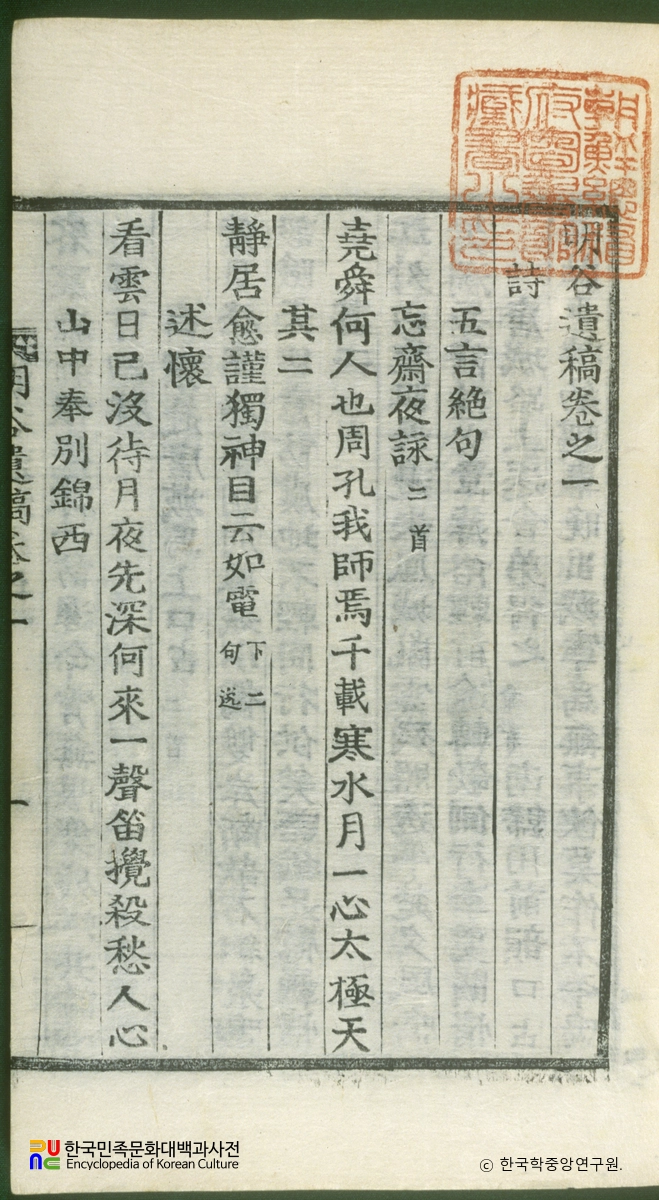 明谷遺稿卷之一
詩
五言絶句
忘齋夜詠 二首
堯舜何人也周孔我師焉千載寒水月一心太極天
其二
靜居愈謹獨神目云如電 下二句逸
述懷
看雲日已沒待月夜先深何來一聲笛攪殺愁人心
山中奉別錦西
明谷遺稿卷之一 一
朝鮮總督府圖書館藏書之印
한국민족문화대백과사전
Encyclopedia of Korean Culture
© 한국학중앙연구원.